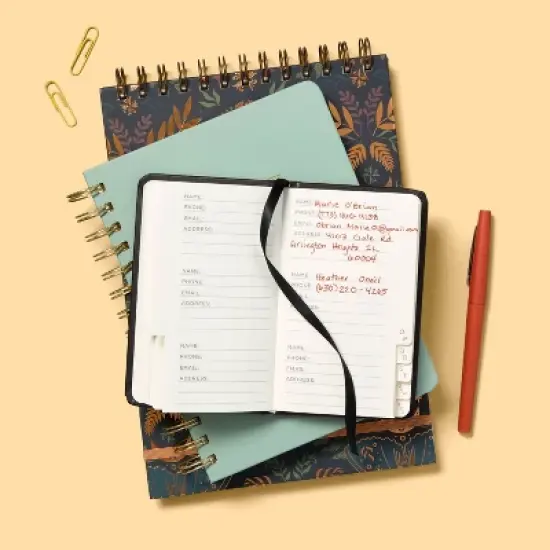 NAME:
PHONE:
EMAIL:
ADDRESS:
NAME:
PHONE:
EMAIL:
ADDRESS:
NAME:
PHONE:
EMAIL:
ADDRESS:
NAME: Marie O'Brian
PHONE:
EMAIL: Obrian.Marie01@gmail.com
ADDRESS: Circle Rd.
Arlington Heights IL
60004
NAME: Heather Oneil
PHONE: (630) 220-4265
NAME:
PHONE:
EMAIL:
ADDRESS: